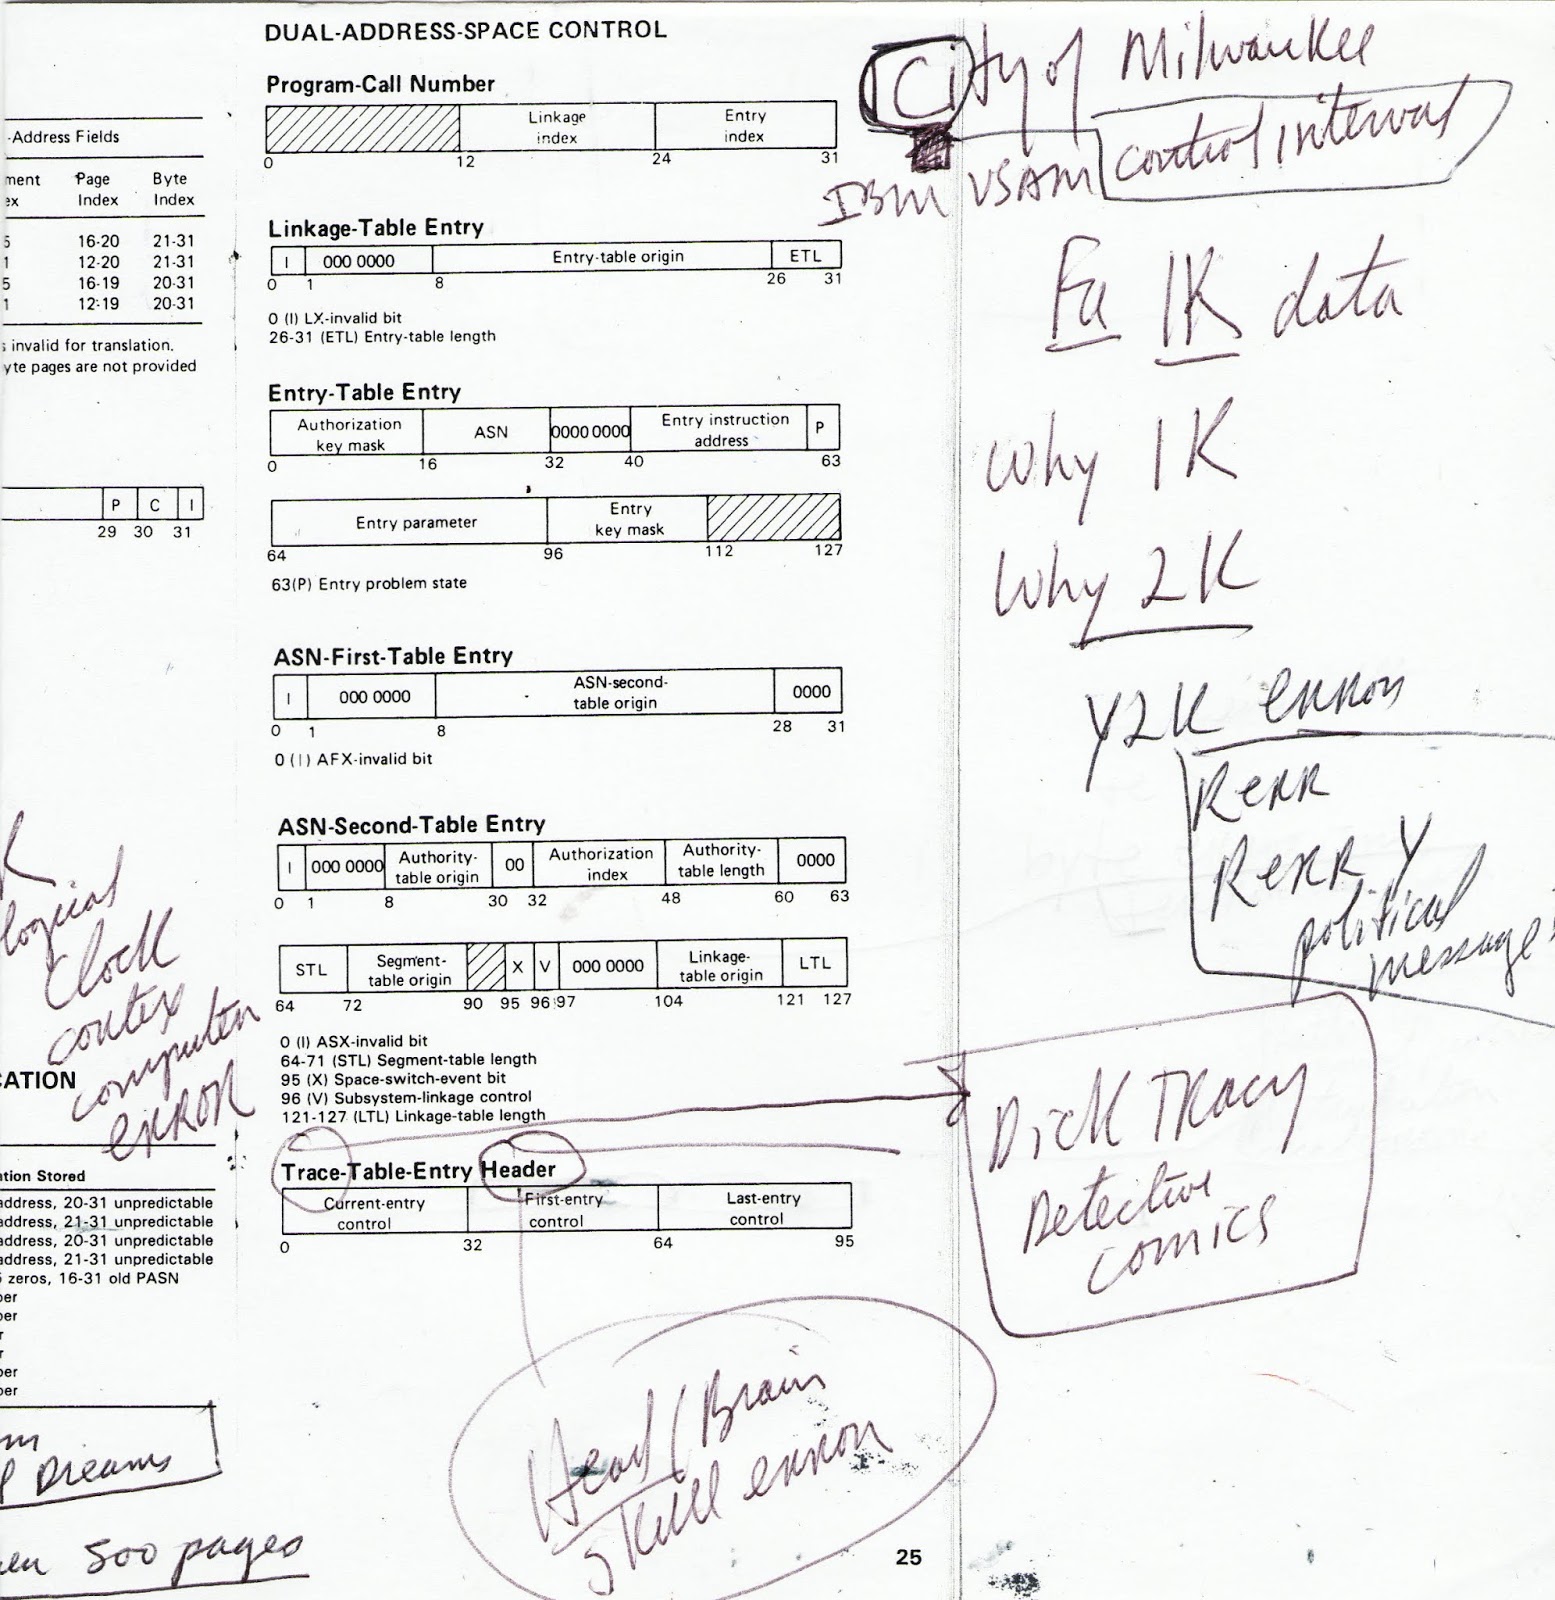 -Address Fields
Page Byte
Index Index
16-20 21-31
12-20 21-31
16-19 20-31
12-19 20-31
invalid for translation.
pages are not provided
P C I
29 30 31
logical
Clock
computer
error
tion Stored
address, 20-31 unpredictable
address, 21-31 unpredictable
address, 20-31 unpredictable
address, 21-31 unpredictable
zeros, 16-31 old PASN
Dreams
500 pages
DUAL-ADDRESS-SPACE CONTROL
Program-Call Number
Linkage index Entry index
0 12 24 31
Linkage-Table Entry
I 000 0000 Entry-table origin ETL
0 1 8 26 31
0 (I) LX-invalid bit
26-31 (ETL) Entry-table length
Entry-Table Entry
Authorization key mask ASN 0000 0000 Entry instruction address P
0 16 32 40 63
Entry parameter Entry key mask
64 96 112 127
63(P) Entry problem state
ASN-First-Table Entry
I 000 0000 ASN-second-table origin 0000
0 1 8 28 31
0 (I) AFX-invalid bit
ASN-Second-Table Entry
I 000 0000 Authority-table origin 00 Authorization index Authority-table length 0000
0 1 8 30 32 48 60 63
STL Segment-table origin X V 000 0000 Linkage-table origin LTL
64 72 90 95 96 97 104 121 127
0 (I) ASX-invalid bit
64-71 (STL) Segment-table length
95 (X) Space-switch-event bit
96 (V) Subsystem-linkage control
121-127 (LTL) Linkage-table length
Trace-Table-Entry Header
Current-entry control First-entry control Last-entry control
0 32 64 95
Head/Brain
Skull error
25
City of Milwaukee
IBM VSAM control interval
Fa 1K data
Why 1K
Why 2K
Y2K error
Rerr
Rerr Y
political
message
Dick Tracy
Detective
comics